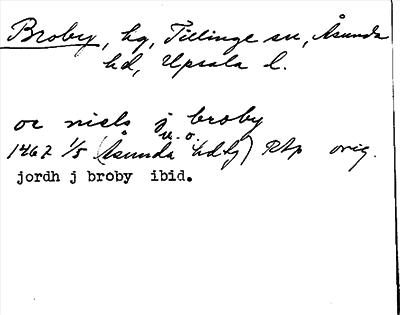 Broby, hg, Tillinge sn, Åsunda
hd, Upsala l.
oc niels j broby
u. o.
1467 1/5 (Åsunda hdtg) RAp orig.
jordh j broby ibid.